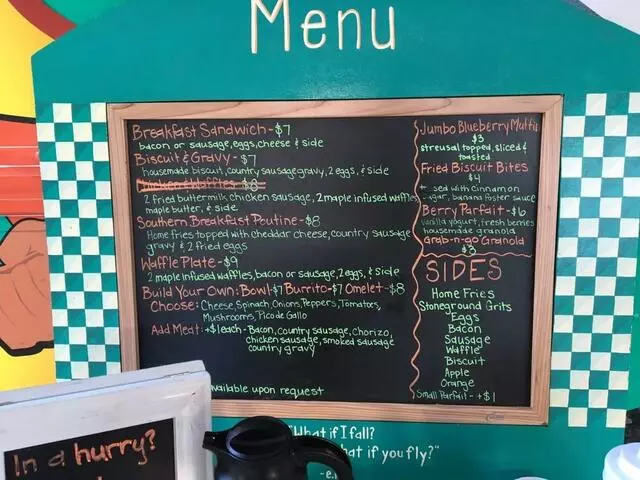 Menu
Breakfast Sandwich - $7
bacon or sausage, eggs, cheese & side
Biscuit & Gravy - $7
housemade biscuit, country sausage gravy, 2 eggs, & side
Chicken & Waffles $8
2 fried buttermilk chicken sausage, 2 maple infused waffles
maple butter, & side
Southern Breakfast Poutine - $8
Home fries topped with cheddar cheese, country sausage
gravy & 2 fried eggs
Waffle Plate - $9
2 maple infused waffles, bacon or sausage, 2 eggs, & side
Build Your Own: Bowl - $7 Burrito - $7 Omelet - $8
Choose: Cheese, Spinach, Onions, Peppers, Tomatoes,
Mushrooms, Pico de Gallo
Add Meat: +$1 each - Bacon, country sausage, chorizo,
chicken sausage, smoked sausage
country gravy
available upon request
Jumbo Blueberry Muffin
$3
streusal topped, sliced &
toasted
Fried Biscuit Bites
$4
tossed with cinnamon
sugar, banana foster sauce
Berry Parfait - $6
vanilla yogurt, fresh berries
housemade granola
Grab-n-go Granola
$3
SIDES
Home Fries
Stoneground Grits
Eggs
Bacon
Sausage
Waffle
Biscuit
Apple
Orange
Small Parfait - +$1
"What if I fall?
what if you fly?"
In a hurry?